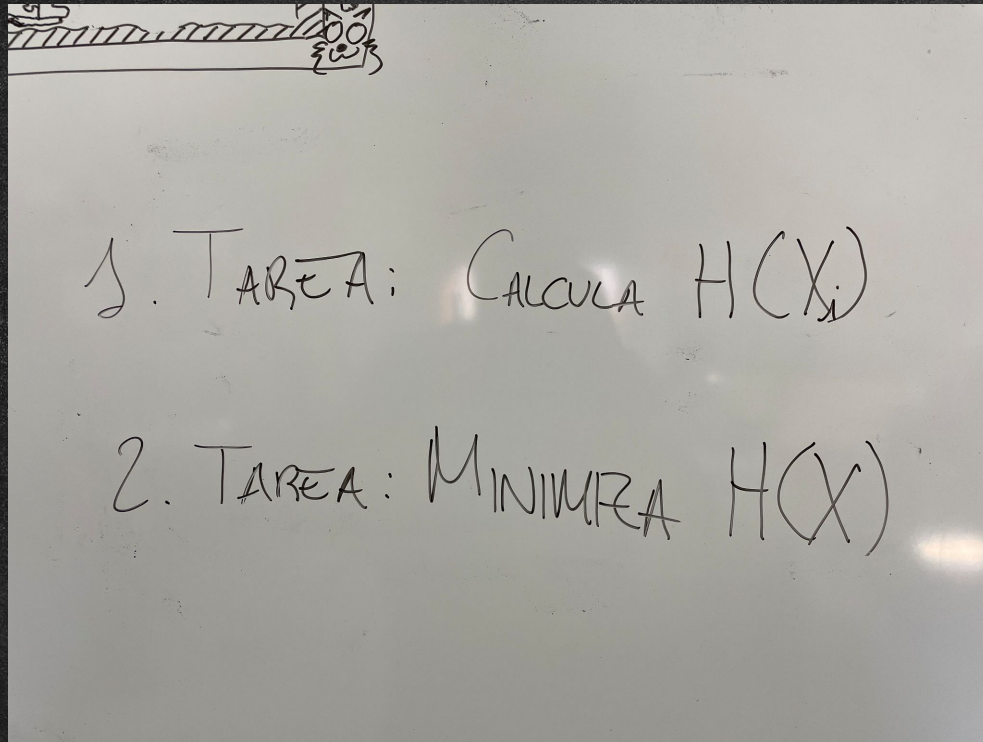 1. TAREA: CALCULA H(Xi)
2. TAREA: MINIMIZA H(X)